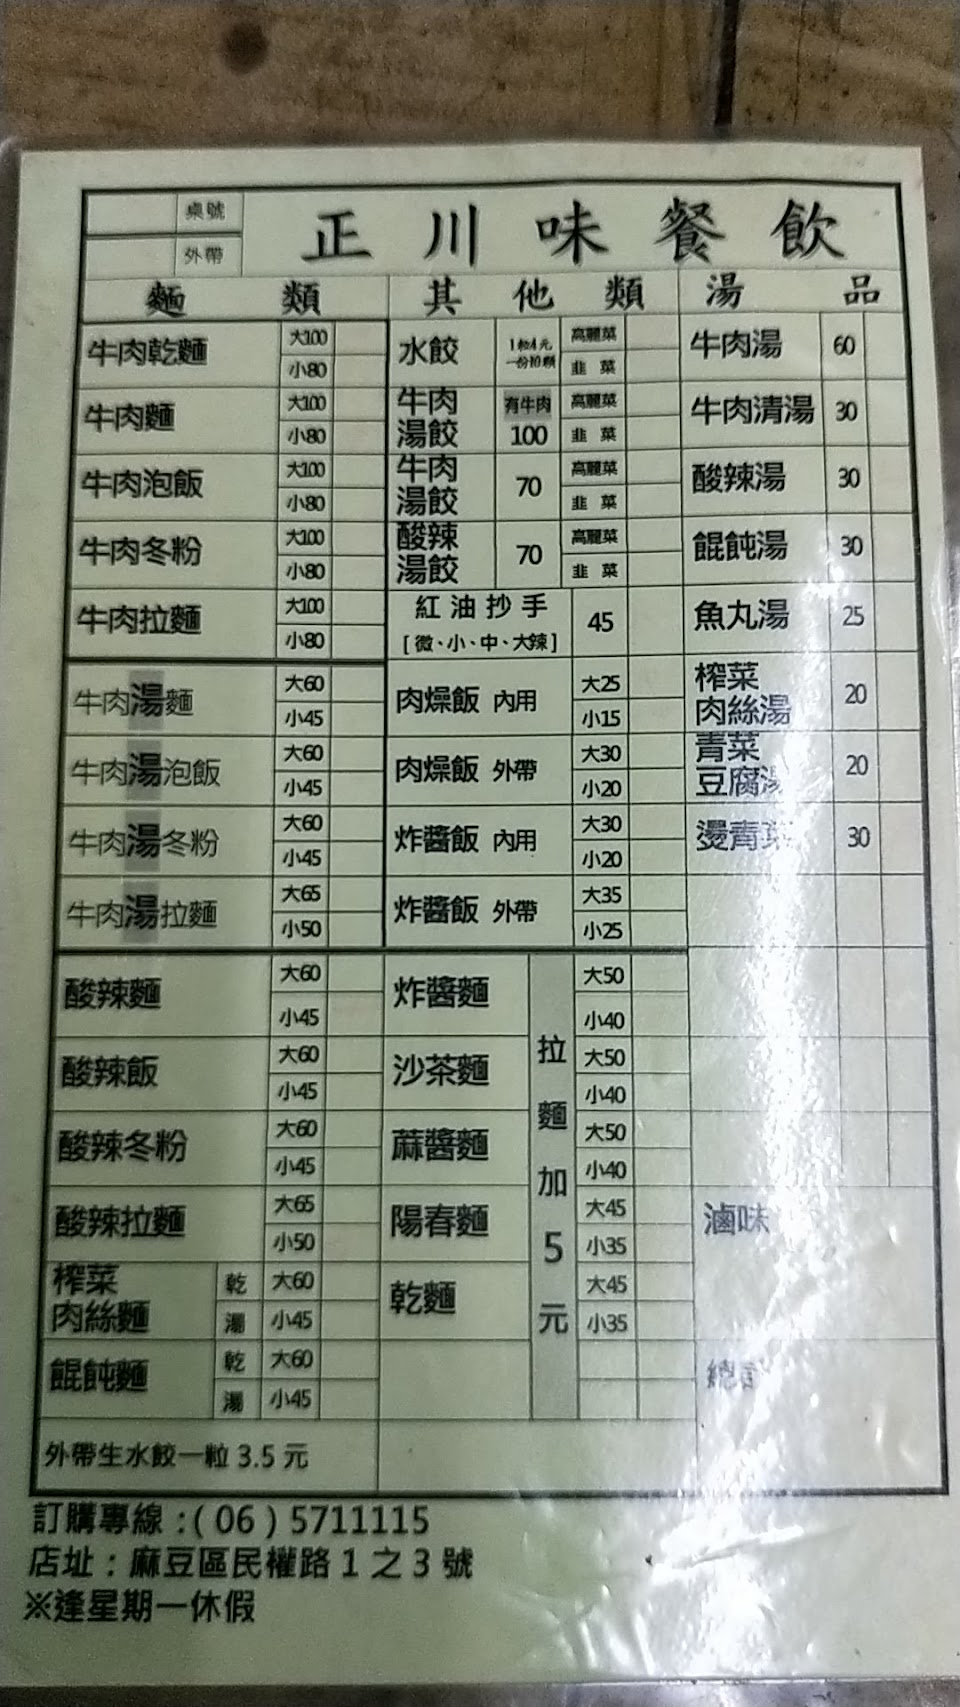 桌號
外帶
正川味餐飲
麵類
牛肉乾麵 大100 小80
牛肉麵 大100 小80
牛肉泡飯 大100 小80
牛肉冬粉 大100 小80
牛肉拉麵 大100 小80
牛肉湯麵 大60 小45
牛肉湯泡飯 大60 小45
牛肉湯冬粉 大60 小45
牛肉湯拉麵 大65 小50
酸辣麵 大60 小45
酸辣飯 大60 小45
酸辣冬粉 大60 小45
酸辣拉麵 大65 小50
榨菜
肉絲麵 乾 大60 湯 小45
餛飩麵 乾 大60 湯 小45
外帶生水餃一粒 3.5 元
其他類
水餃 1粒4元 一份10顆 高麗菜 韭菜
牛肉
湯餃 有牛肉 100 高麗菜 韭菜
牛肉
湯餃 70 高麗菜 韭菜
酸辣
湯餃 70 高麗菜 韭菜
紅油抄手 45
[微、小、中、大辣]
肉燥飯 內用 大25 小15
肉燥飯 外帶 大30 小20
炸醬飯 內用 大30 小20
炸醬飯 外帶 大35 小25
炸醬麵 大50 小40
沙茶麵 大50 小40
蔴醬麵 大50 小40
陽春麵 大45 小35
乾麵 大45 小35
拉麵加5元
湯品
牛肉湯 60
牛肉清湯 30
酸辣湯 30
餛飩湯 30
魚丸湯 25
榨菜
肉絲湯 20
青菜
豆腐湯 20
燙青菜 30
滷味
訂購專線:(06)5711115
店址：麻豆區民權路1之3號
※逢星期一休假